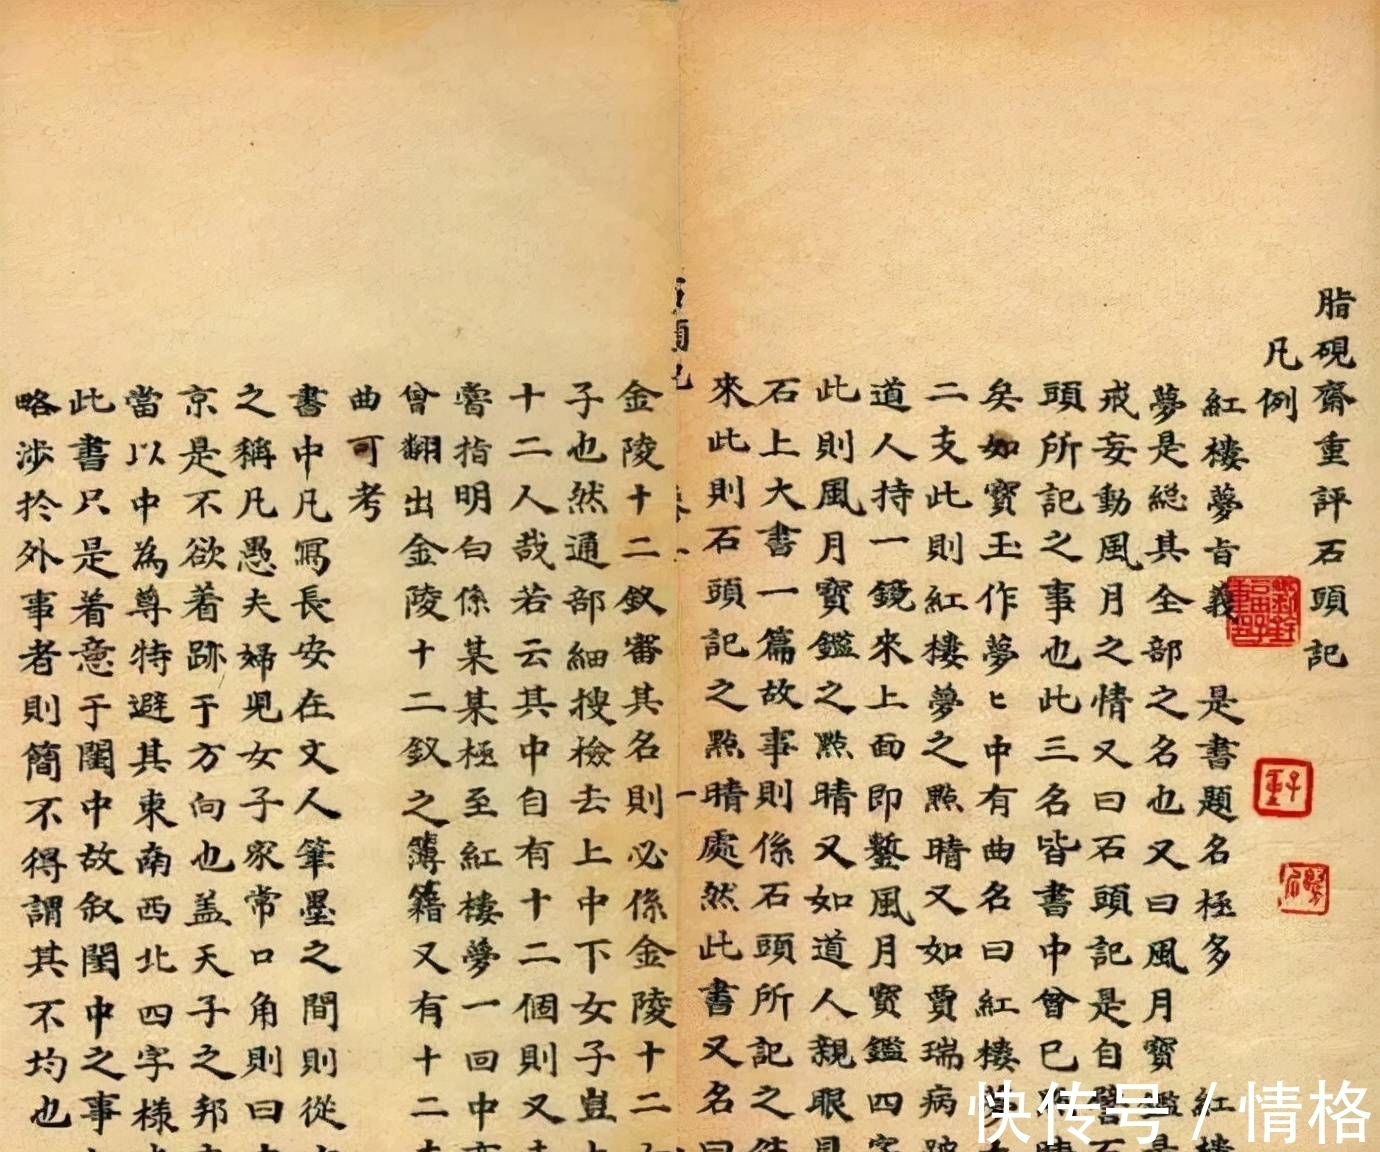 脂硯齋重評石頭記
凡例
紅樓夢旨義 是書題名極多 紅樓
夢是總其全部之名也又曰風月寶鑑是
戒妄動風月之情又曰石頭記是自譬石
頭所記之事也此三名皆書中曾已
矣如寶玉作夢ヒ中有曲名曰紅樓夢
二支此則紅樓夢之點睛又如賈瑞病跛
道人持一鏡來上面即鏨風月寶鑑四字
此則風月寶鑑之點睛又如道人親眼見
石上大書一篇故事則係石頭所記之
來此則石頭記之點睛處然此書又名曰
金陵十二釵審其名則必係金陵十二
子也然通部細搜檢去上中下女子豈
十二人哉若云其中自有十二個則又
嘗指明白係某某極至紅樓夢一回中
曾翻出金陵十二釵之簿籍又有十二
曲可考
書中凡寫長安在文人筆墨之間則從
之稱凡愚夫婦兒女子家常口角則曰
京是不欲着跡于方向也盖天子之邦
當以中為尊特避其東南西北四字樣
此書只是着意于閨中故叙閨中之事
略涉於外事者則簡不得謂其不均也
快传号 / 情格